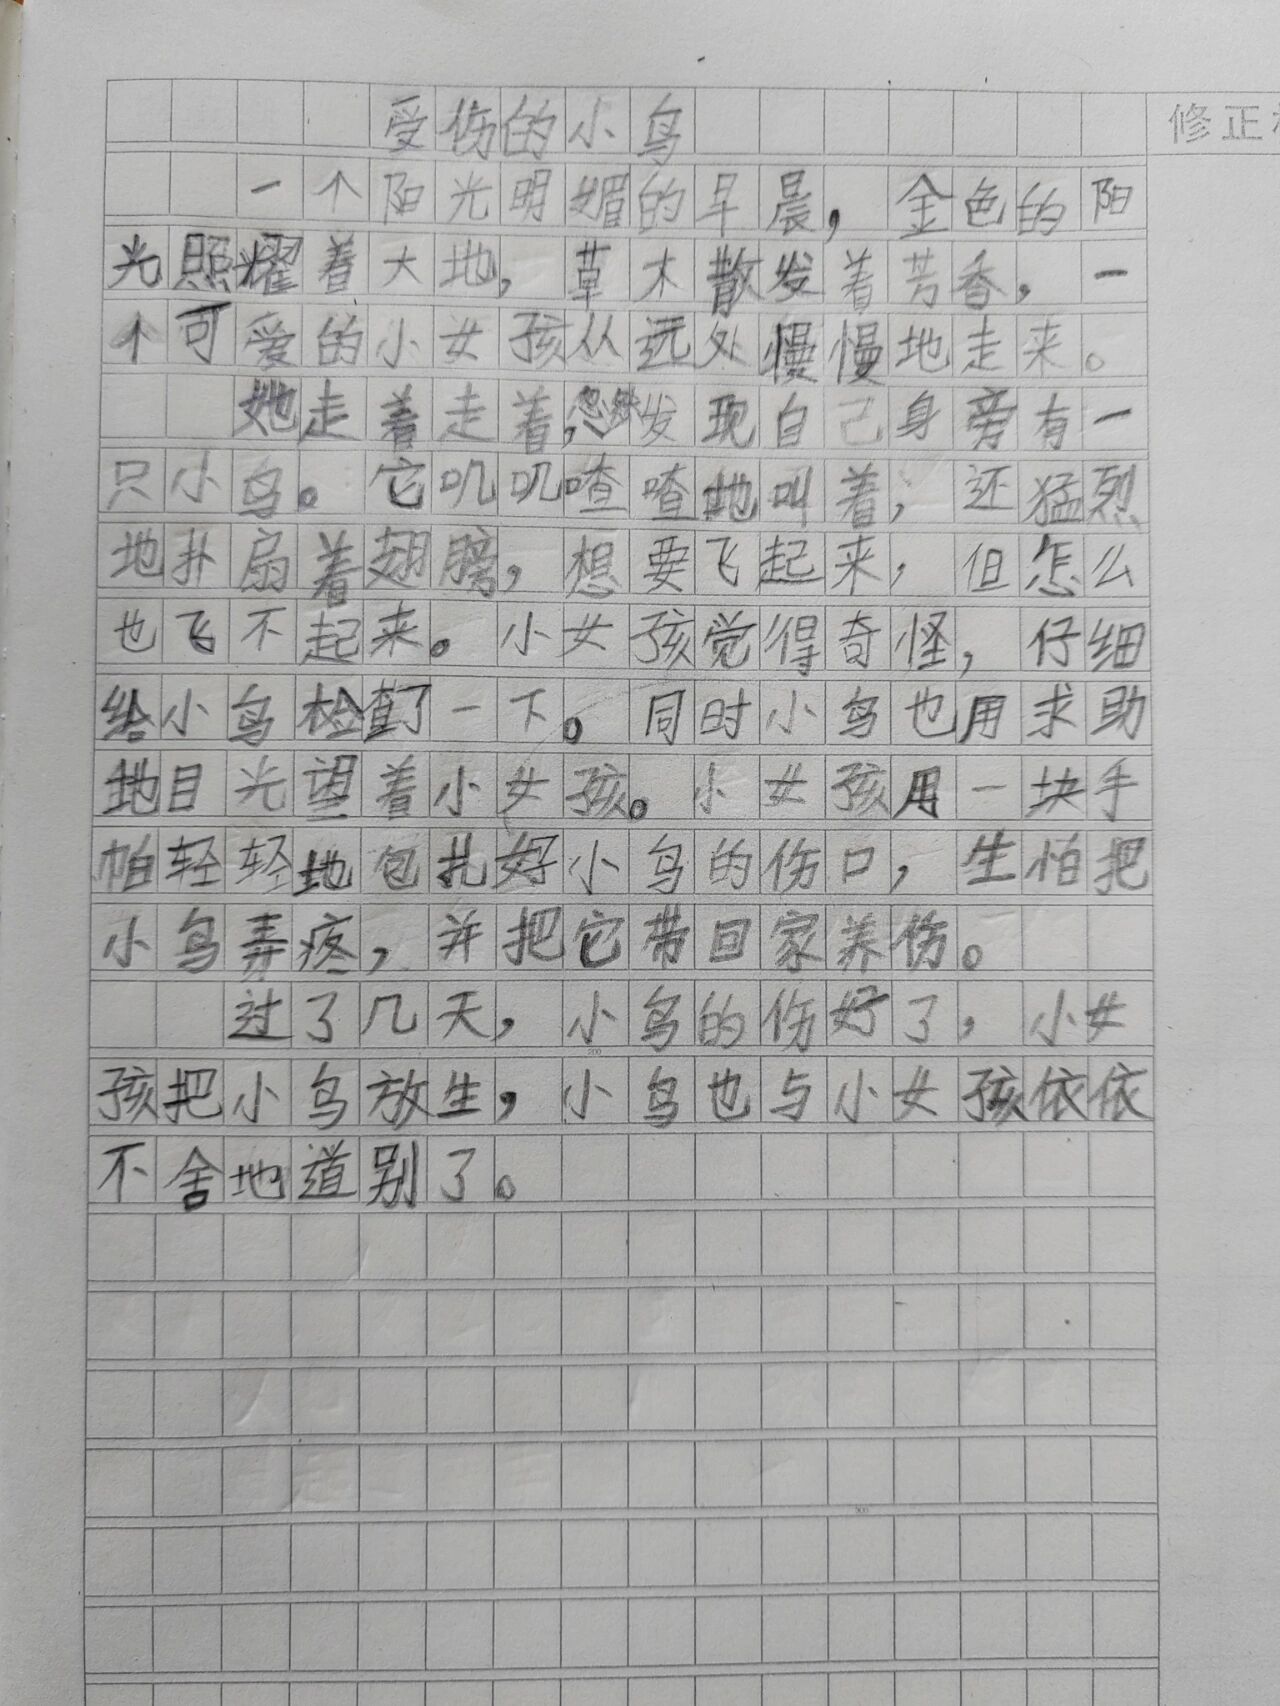 受伤的小鸟
修正
一个阳光明媚的早晨，金色的阳
光照耀着大地，草木散发着芳香，一
个可爱的小女孩从远处慢慢地走来。
她走着走着，忽然发现自己身旁有一
只小鸟。它叽叽喳喳地叫着，还猛烈
地扑扇着翅膀，想要飞起来，但怎么
也飞不起来。小女孩觉得奇怪，仔细
给小鸟检查了一下。同时小鸟也用求助
地目光望着小女孩。小女孩用一块手
帕轻轻地包扎好小鸟的伤口，生怕把
小鸟弄疼，并把它带回家养伤。
过了几天，小鸟的伤好了，小女
200
孩把小鸟放生，小鸟也与小女孩依依
不舍地道别了。
300